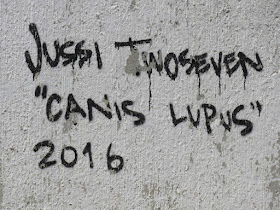 JUSSI TWOSEVEN
"CANIS LUPUS"
2016